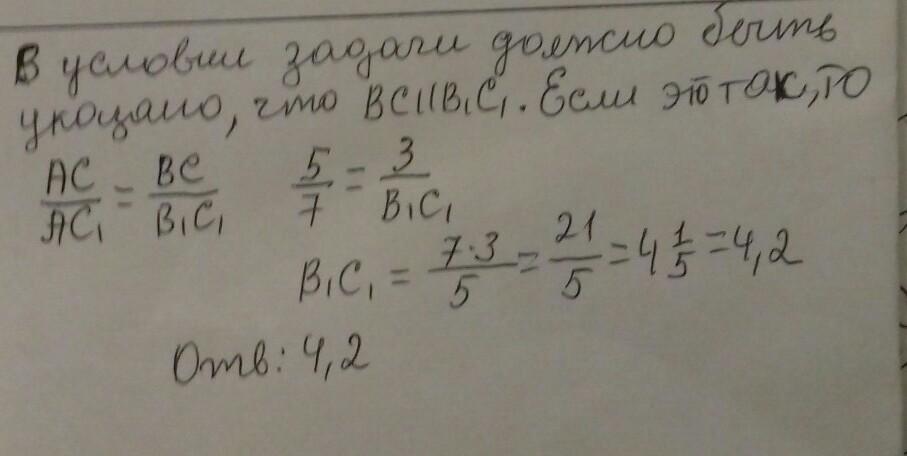 В условии задачи должно быть
указано, что BC||B₁C₁. Если это так, то
AC/AC₁ = BC/B₁C₁  5/7 = 3/B₁C₁
B₁C₁ = 7·3/5 = 21/5 = 4 1/5 = 4,2
Отв: 4,2